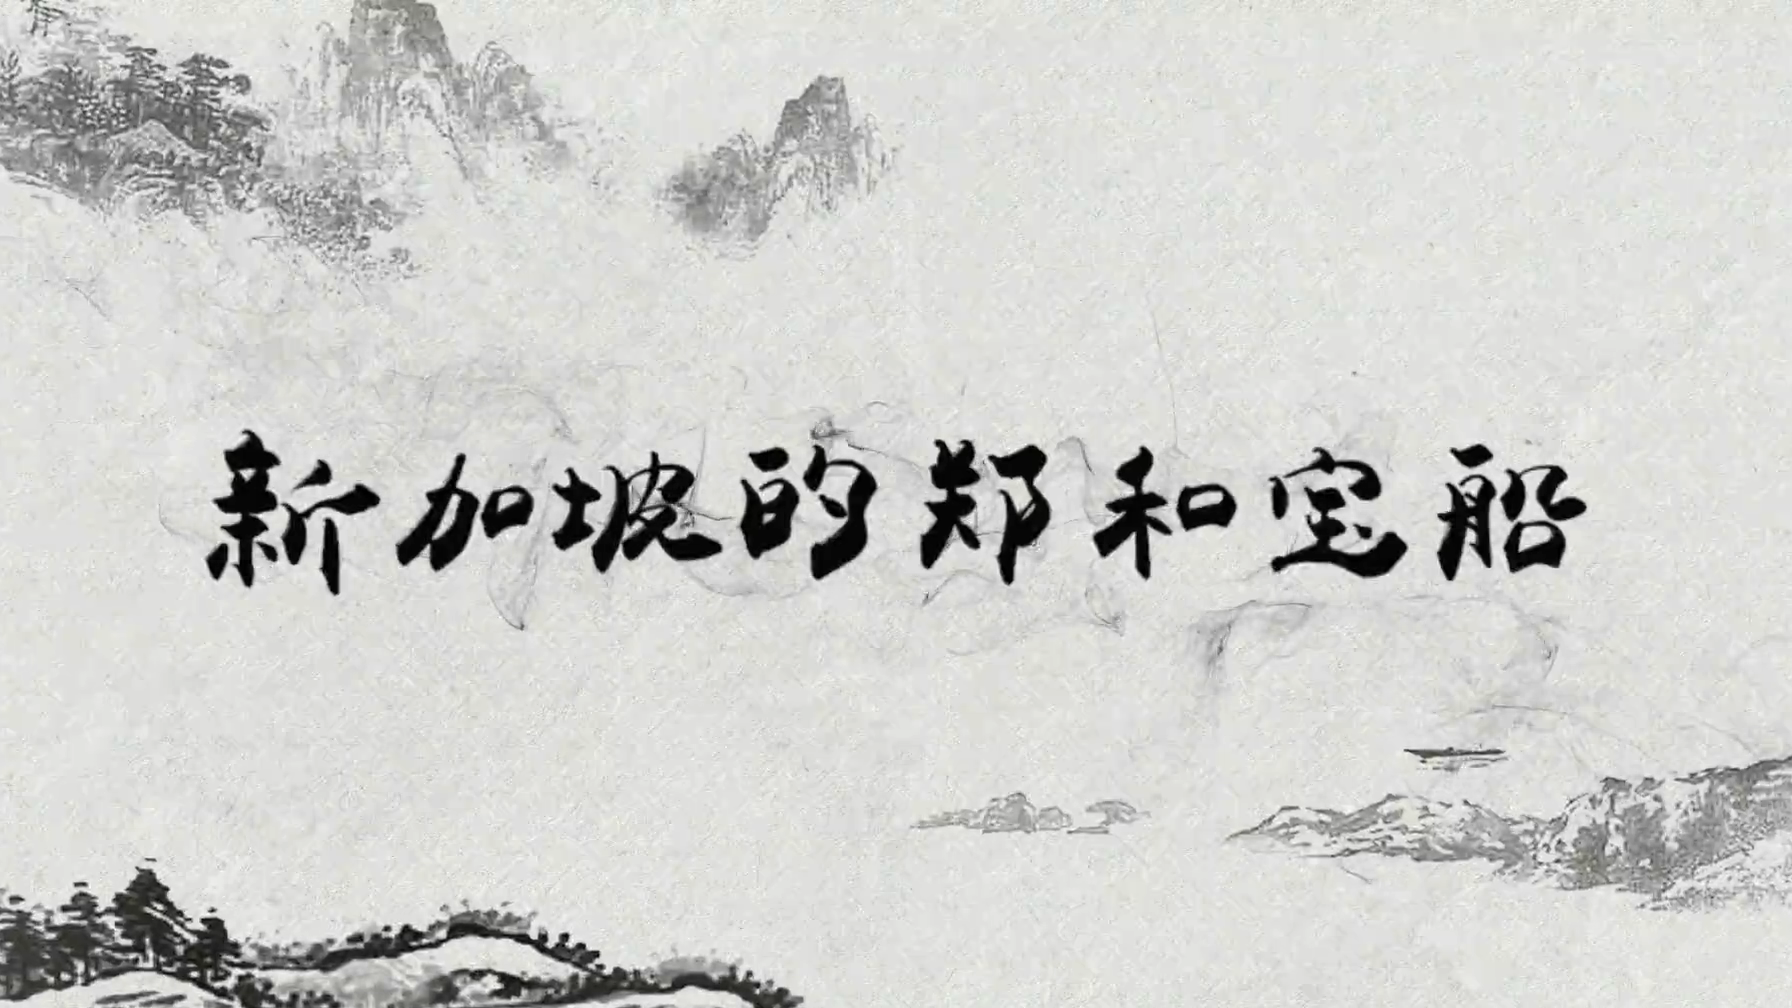 新加坡的郑和宝船